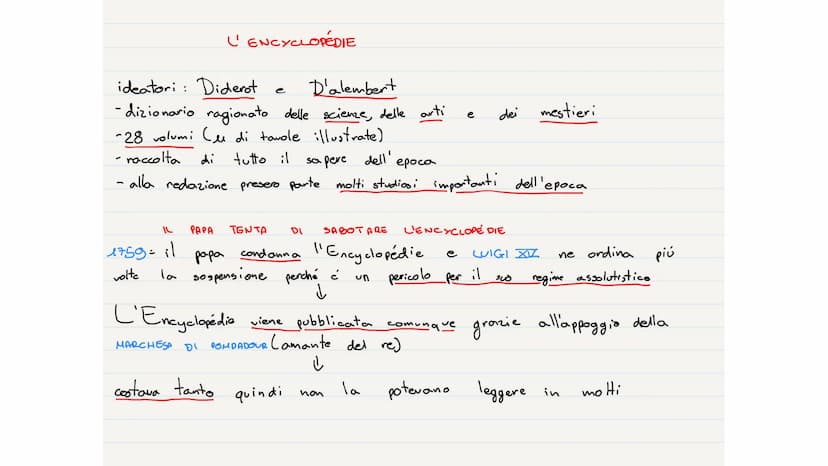 L'ENCYCLOPÉDIE
ideatori: Diderot e D'alembert
- dizionario ragionato delle scienze, delle arti e dei mestieri
- 28 volumi (11 di tavole illustrate)
- raccolta di tutto il sapere dell'epoca
- alla redazione presero parte molti studiosi importanti dell'epoca
IL PAPA TENTA DI SABOTARE L'ENCYCLOPÉDIE
1759 = il papa condanna l'Encyclopédie e LUIGI XV ne ordina più
volte la sospensione perché è un pericolo per il suo regime assolutistico
↓
L'Encyclopédie viene pubblicata comunque grazie all'appoggio della
MARCHESA DI POMPADOUR (amante del re)
↓
costava tanto quindi non la potevano leggere in molti